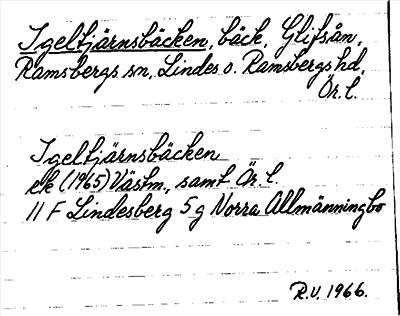 Igeltjärnsbäcken, bäck, Glifsån,
Ramsbergs sn, Lindes o. Ramsbergs hd,
Ör. l.
Igeltjärnsbäcken
ek (1965) Västm., samt Ör. l.
11 F Lindesberg 5 g Norra Allmänningbo
R.V. 1966.